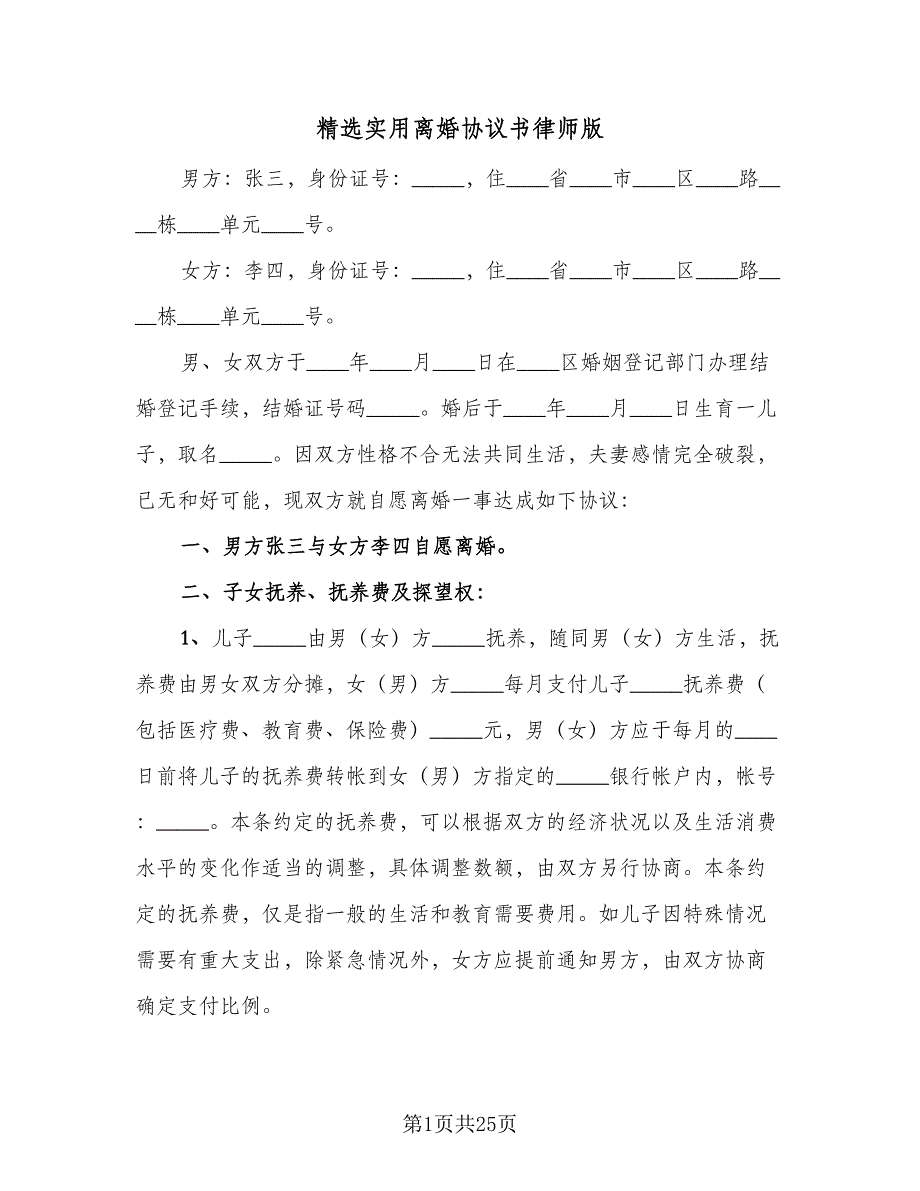 精选实用离婚协议书律师版
男方：张三，身份证号：_____，住____省____市____区____路__
__栋____单元____号。
女方：李四，身份证号：_____，住____省____市____区____路__
__栋____单元____号。
男、女双方于____年____月____日在____区婚姻登记部门办理结
婚登记手续，结婚证号码_____。婚后于____年____月____日生育一儿
子，取名_____。因双方性格不合无法共同生活，夫妻感情完全破裂，
已无和好可能，现双方就自愿离婚一事达成如下协议：
一、男方张三与女方李四自愿离婚。
二、子女抚养、抚养费及探望权：
1、儿子_____由男（女）方_____抚养，随同男（女）方生活，抚
养费由男女双方分摊，女（男）方_____每月支付儿子_____抚养费（
包括医疗费、教育费、保险费）_____元，男（女）方应于每月的____
日前将儿子的抚养费转帐到女（男）方指定的_____银行帐户内，帐号
：_____。本条约定的抚养费，可以根据双方的经济状况以及生活消费
水平的变化作适当的调整，具体调整数额，由双方另行协商。本条约
定的抚养费，仅是指一般的生活和教育需要费用。如儿子因特殊情况
需要有重大支出，除紧急情况外，女方应提前通知男方，由双方协商
确定支付比例。
第1页共25页